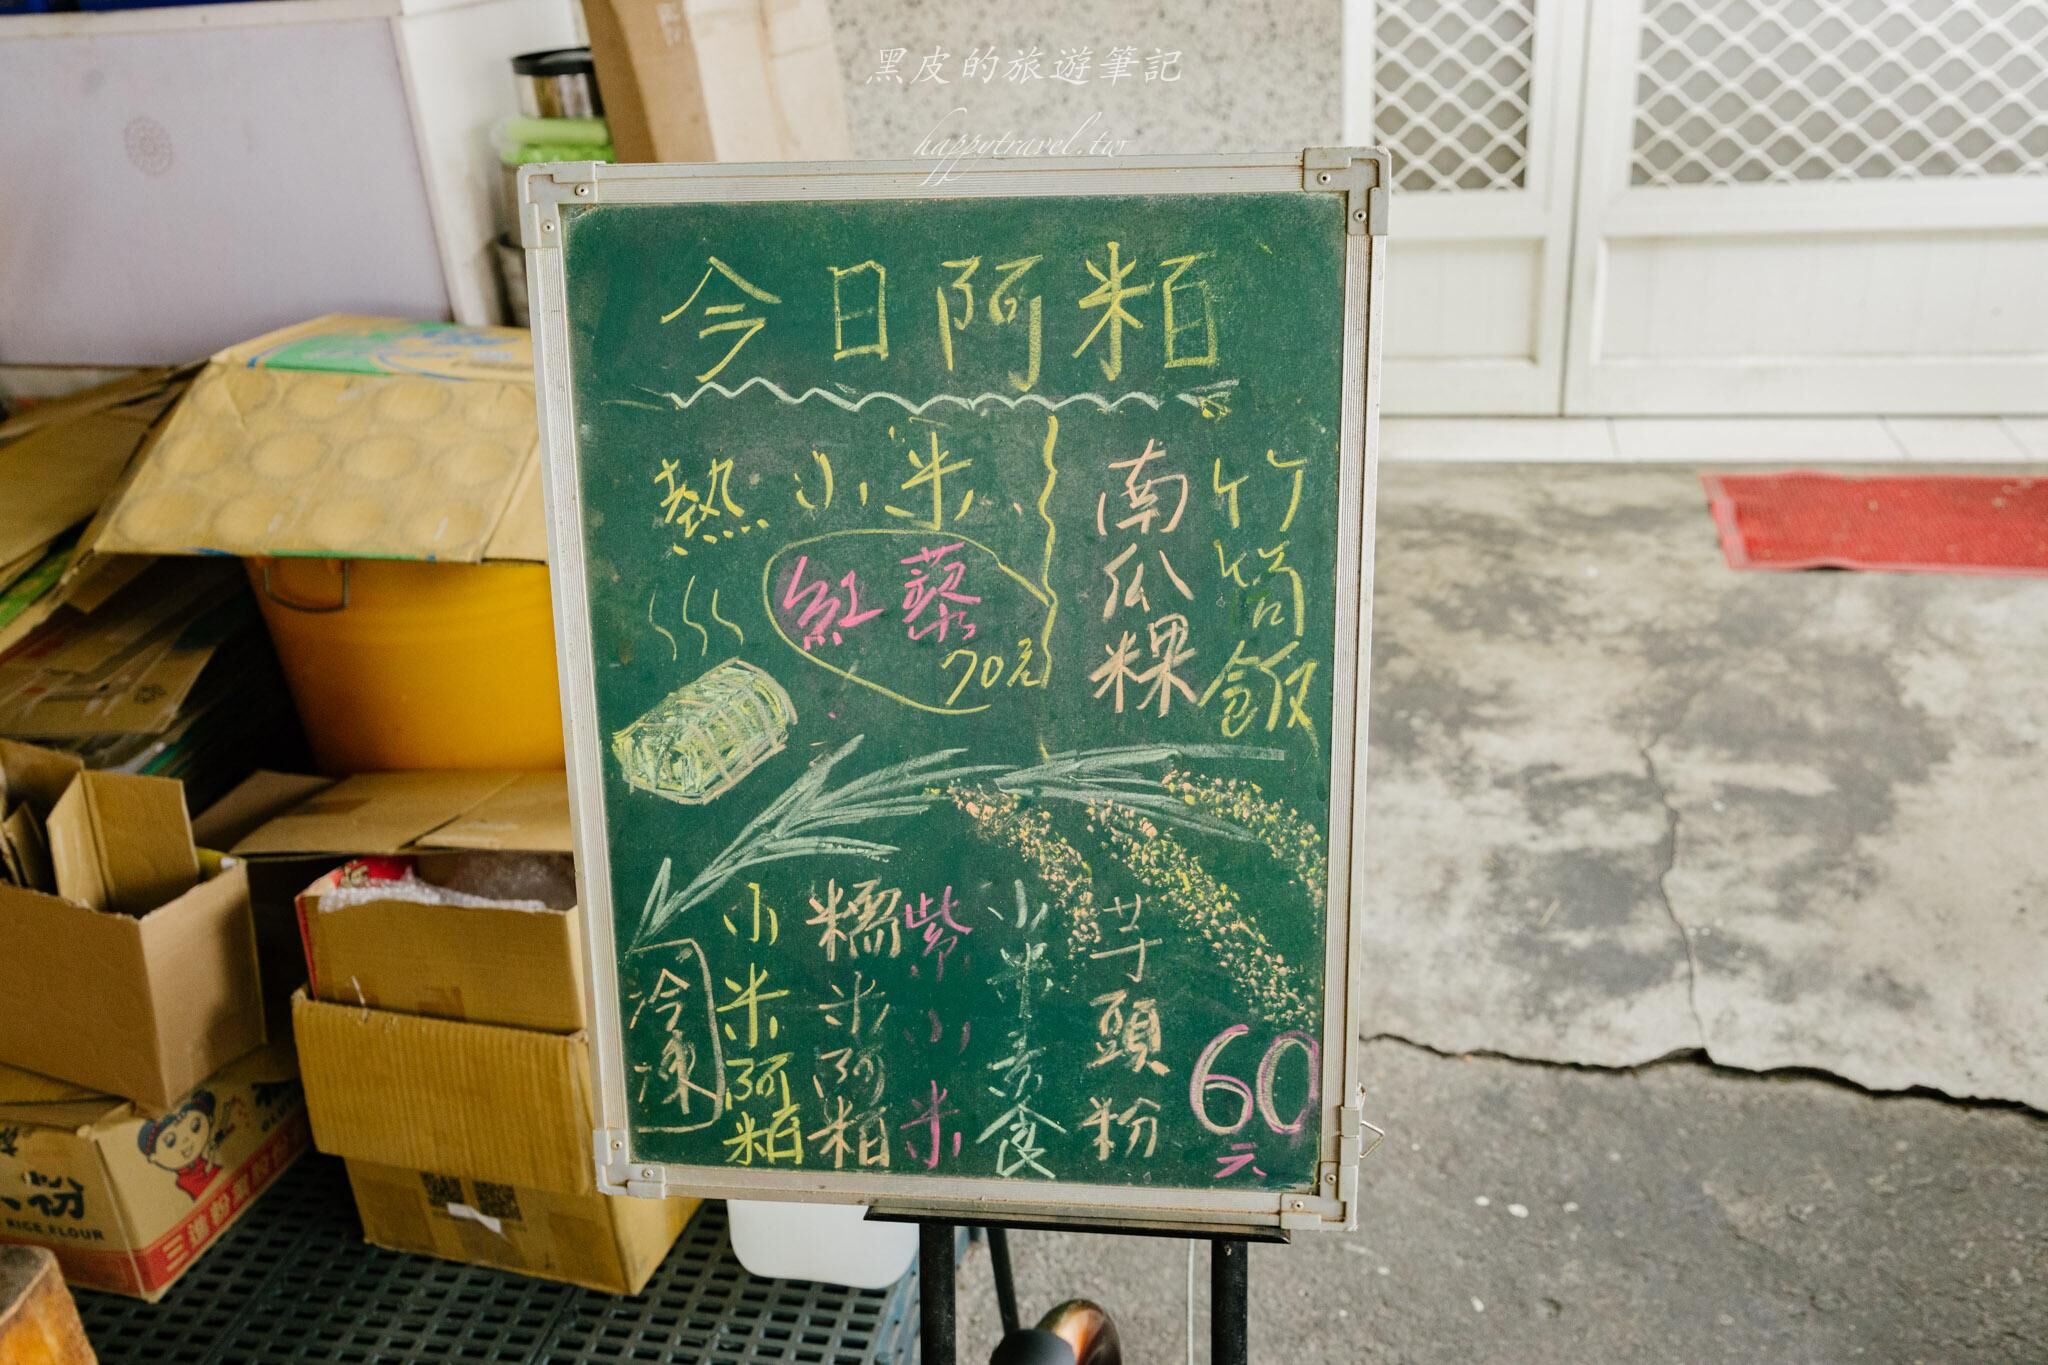 黑皮的旅遊筆記
happytravel.tw
今日阿粨
熱小米
紅藜
70元
南瓜粿
竹筒飯
冷凍
小米阿粨
糯米阿粨
紫小米
小米素食
芋頭粉
60元
RICE FLOUR